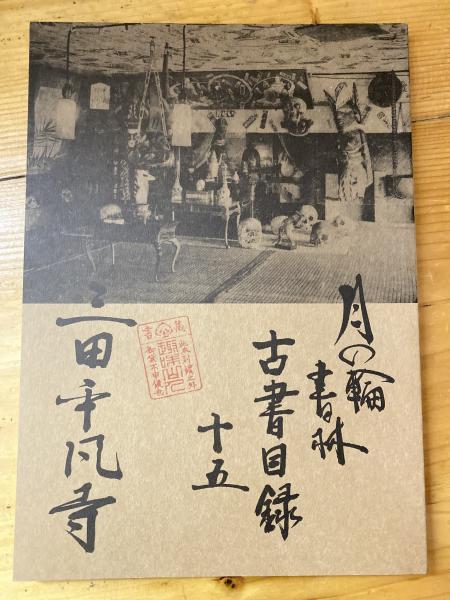 月の輪
書林
古書目録
十五
三田平凡寺
趣味山